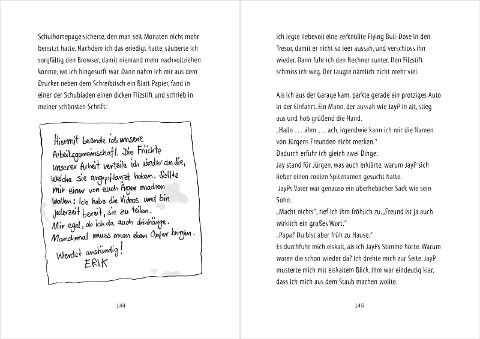 Schulhomepage sicherte, den man seit Monaten nicht mehr
benutzt hatte. Nachdem ich das erledigt hatte, säuberte ich
sorgfältig den Browser, damit niemand mehr nachvollziehen
konnte, wo ich hingesurft war. Dann nahm ich mir aus dem
Drucker neben dem Schreibtisch ein Blatt Papier, fand in
einer der Schubladen einen dicken Filzstift und schrieb in
meiner schönsten Schrift:
Hiermit beende ich unsere
Arbeitsgemeinschaft. Die Früchte
unserer Arbeit verteile ich wieder an die,
welche sie angepflanzt haben. Sollte
mir einer von euch Ärger machen
wollen: Ich habe die Videos und bin
jederzeit bereit, sie zu teilen.
Mir egal, ob ich da auch drinhänge.
Manchmal muss man eben Opfer bringen.
Werdet anständig!
ERIK
144
Ich legte liebevoll eine zerknüllte Flying Bull-Dose in den
Tresor, damit er nicht so leer aussah, und verschloss ihn
wieder. Dann fuhr ich den Rechner runter. Den Filzstift
schmiss ich weg. Der taugte nämlich nicht mehr viel.
Als ich aus der Garage kam, parkte gerade ein protziges Auto
in der Einfahrt. Ein Mann, der aussah wie JayP in alt, stieg
aus und hob grüßend die Hand.
„Hallo ... ähm ... ach, irgendwie kann ich mir die Namen
von Jürgens Freunden nicht merken."
Dadurch erfuhr ich gleich zwei Dinge:
Jay stand für Jürgen, was auch erklärte, warum JayP sich
lieber einen coolen Spitznamen gesucht hatte.
JayPs Vater war genauso ein überheblicher Sack wie sein
Sohn.
„Macht nichts", rief ich ihm fröhlich zu. „Freund ist ja auch
wirklich ein großes Wort."
„Papa? Du bist aber früh zu Hause."
Es durchfuhr mich eiskalt, als ich JayPs Stimme hörte. Warum
waren die schon wieder da? Ich drehte mich zur Seite. JayP
musterte mich mit eiskaltem Blick. Ihm war eindeutig klar,
dass ich mich aus dem Staub machen wollte.
145